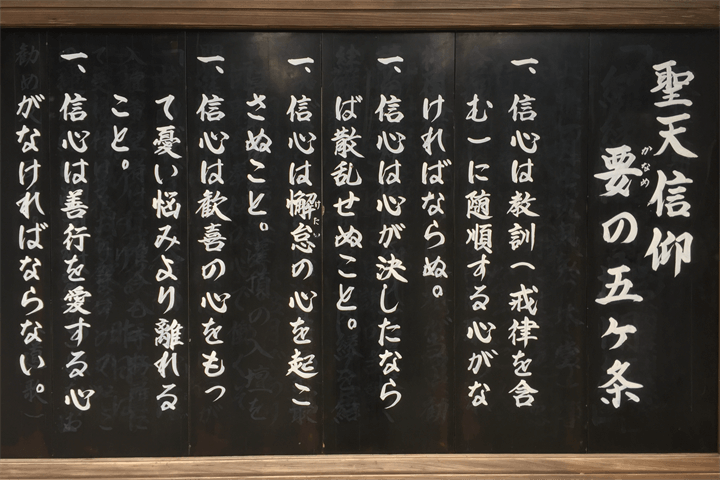 聖天信仰
要の五ケ条
かなめ
一、信心は教訓(戒律を含
む)に随順する心がな
ければならぬ。
一、信心は心が決したなら
ば散乱せぬこと。
一、信心は懈怠の心を起こ
けたい
さぬこと。
一、信心は歓喜の心をもっ
て憂い悩みより離れる
こと。
一、信心は善行を愛する心
がなければならない。